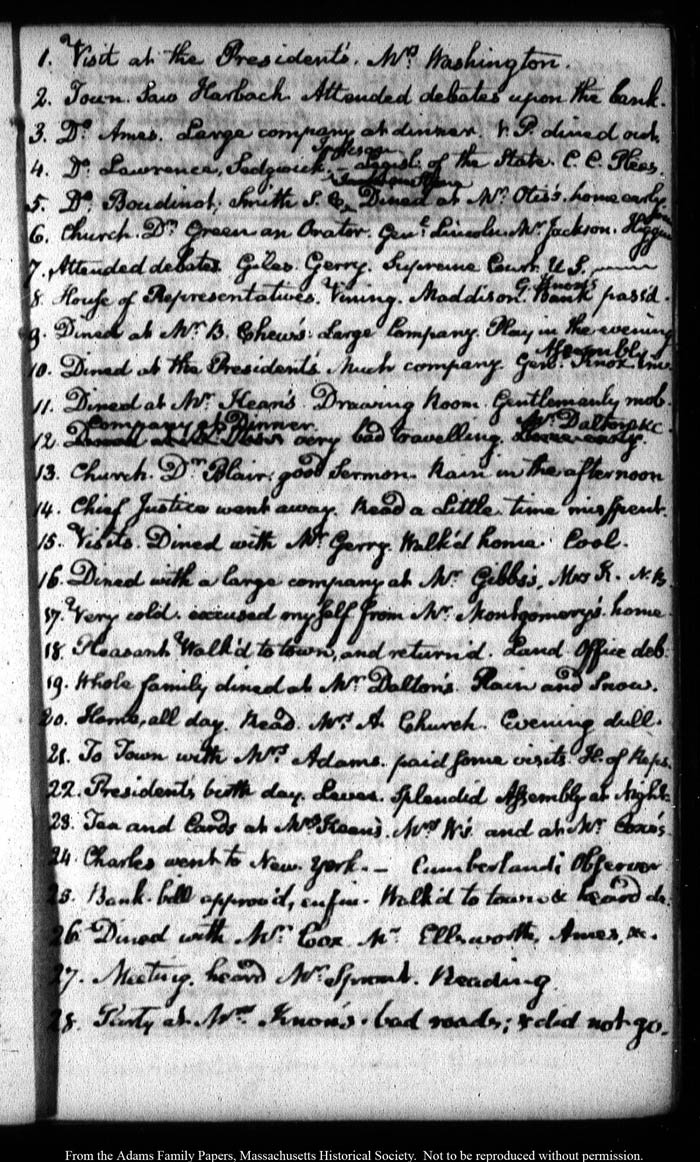 1. Visit at the President's. Mrs Washington.
2. Town. Saw Harbach. Attended debates upon the bank.
3. Do. Ames. Large company at dinner. V.P. dined out.
4. Do. Lawrence, Sedgwick, Jackson of the State. C. C. Pleas.
5. Do. Boudinot, Smith S.C. Dined at Mr. Otis's. home early.
6. Church. Dr. Green an Orator. Genl. Lincoln. Mr. Jackson.
7. Attended debates. Giles. Gerry. Supreme Court U.S.
8. House of Representatives. Vining. Maddison. Bank pass'd.
9. Dined at Mr. B. Chew's. Large Company. Play in the evening
10. Dined at the President's. Much company. Genl. Knox
Assembly
11. Dined at Mr. Kean's. Drawing Room. Gentlemanly mob.
Company at Dinner. Mr. Dalton &c
12. very bad travelling.
13. Church. Dr. Blair, good Sermon. Rain in the afternoon
14. Chief Justice went away. Read a Little. time misspent.
15. Visits. Dined with Mr. Gerry. Walk'd home. Cool.
16. Dined with a large company at Mr. Gibbs's, Mrs K. N.B.
17. Very cold. excused myself from Mr. Montgomery's. home
18. Pleasant. Walk'd to town, and return'd. Land Office deb.
19. Whole family dined at Mr. Dalton's. Rain and Snow.
20. Home, all day. Read. Mrs. A. Church. Evening dull.
21. To Town with Mrs. Adams. paid some visits. H. of Reps.
22. President's birth day. Levee. Splendid Assembly at Night.
23. Tea and Cards at Mrs Keen's. Mrs W's. and at Mr. Coxe's
24. Charles went to New York. — Cumberland's Observer
25. Bank-bill approv'd, enfin. Walk'd to town & heard de.
26. Dined with Mr. Cox. Mr. Ellsworth, Ames, &c.
27. Meeting. heard Mr. Sprout. Reading.
28. Party at Mrs. Knox's. bad roads; & did not go.
From the Adams Family Papers, Massachusetts Historical Society. Not to be reproduced without permission.